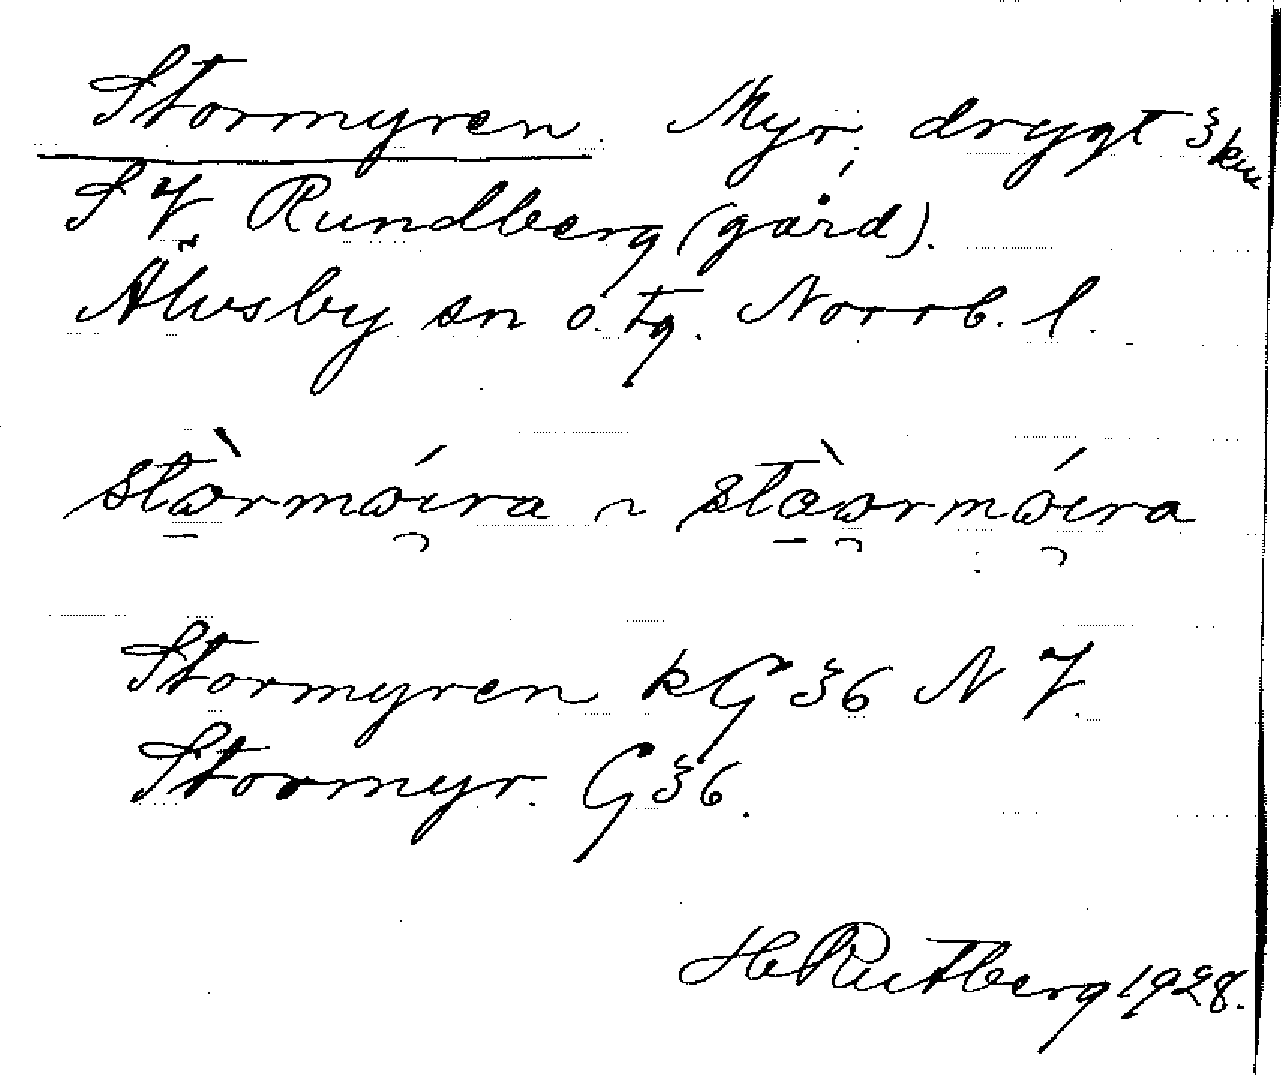 Stormyren. Myr, drygt 3 km
S V Rundberg (gård).
Älvsby sn o. tg. Norrb. l.
Stormyren kG 36 N V.
Stormyr. G 36.
H Rutberg 1928.